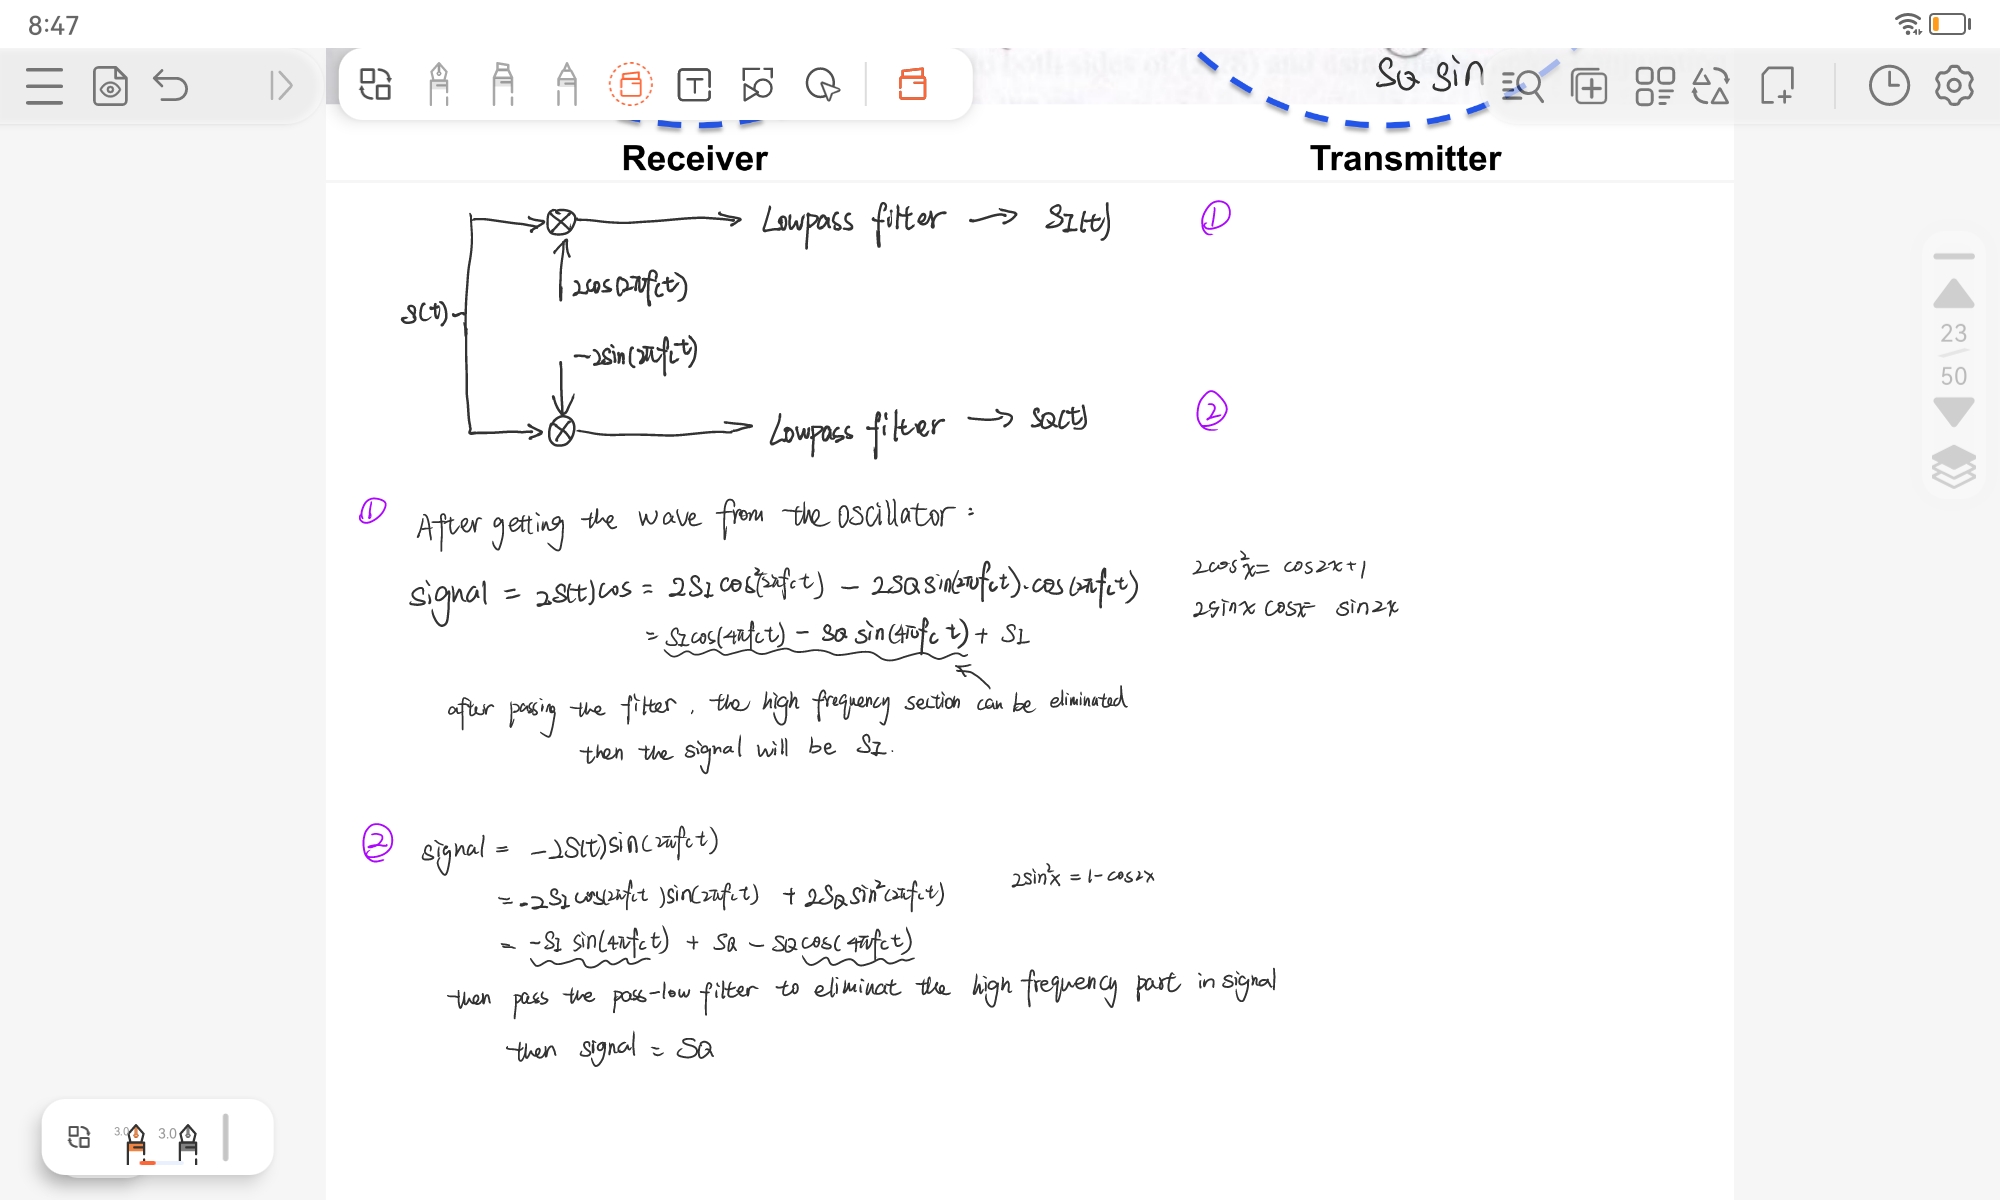 8:47
SQ sin
Receiver
Transmitter
Lowpass filter → SI(t)
①
2cos(2πfct)
S(t)
-2sin(2πfct)
Lowpass filter → SQ(t)
②
① After getting the wave from the oscillator:
signal = 2S(t)cos = 2SI cos²(2πfct) - 2SQ sin(2πfct)·cos(2πfct)
2cos²x = cos2x+1
2sinx cosx = sin2x
= SI cos(4πfct) - SQ sin(4πfct) + SI
after passing the filter, the high frequency section can be eliminated
then the signal will be SI.
② signal = -2S(t)sin(2πfct)
= -2SI cos(2πfct)sin(2πfct) + 2SQ sin²(2πfct)
2sin²x = 1-cos2x
= -SI sin(4πfct) + SQ - SQ cos(4πfct)
then pass the pass-low filter to eliminat the high frequency part in signal
then signal = SQ
23
50
3.0
3.0